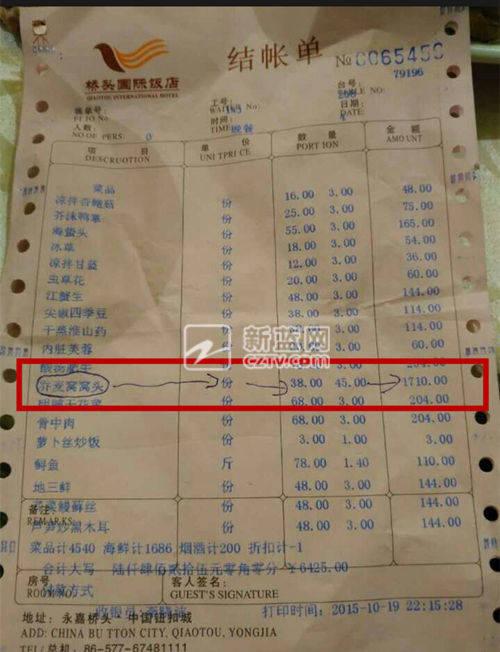 桥头国际饭店
QIAOTOU INTERNATIONAL HOTEL
结帐单 No 0065450
79196
账单号:
工号
台号
TABLE NO:
人数
NO OF PERS: 0
时间:
TIME: 晚餐
日期:
DATE:
项目 单价 数量 金额
DESCRUOTION UNI TPRI CE PORT ION AMO UNT
菜品
凉拌杏鲍菇 份 16.00 3.00 48.00
芥沫鸭掌 份 25.00 3.00 75.00
海蜇头 份 55.00 3.00 165.00
冰草 份 18.00 3.00 54.00
凉拌甘蓝 份 12.00 3.00 36.00
虫草花 份 20.00 3.00 60.00
江蟹生 份 48.00 3.00 144.00
尖椒四季豆 份 38.00 3.00 114.00
干蒸淮山药 份 38.00 3.00 114.00
内脏芙蓉 份 3.00 60.00
酸汤肥牛
荞麦窝窝头 份 38.00 45.00 1710.00
干花菜 份 68.00 3.00 204.00
骨中肉 份 68.00 3.00 204.00
萝卜丝炒饭 份 3.00 1.00 3.00
鲜鱼 斤 78.00 1.40 110.00
地三鲜 份 48.00 3.00 144.00
鳗鲞丝 份 48.00 3.00 144.00
炒黑木耳 份 48.00 3.00 144.00
备注:
REMARKS
菜品计4540 海鲜计1686 烟酒计200 折扣计-1
合计大写 陆仟肆佰贰拾伍元零角零分 ¥6425.00
房号
ROOM NO.
付款方式
客人签名:
GUEST'S SIGNATURE
收银员: 打印时间:2015-10-19 22:15:28
地址: 永嘉桥头·中国钮扣城
ADD: CHINA BU TTON CITY, QIAOTOU, YONGJIA
TEL/总机: 86-577-67481111
新蓝网
cztv.com